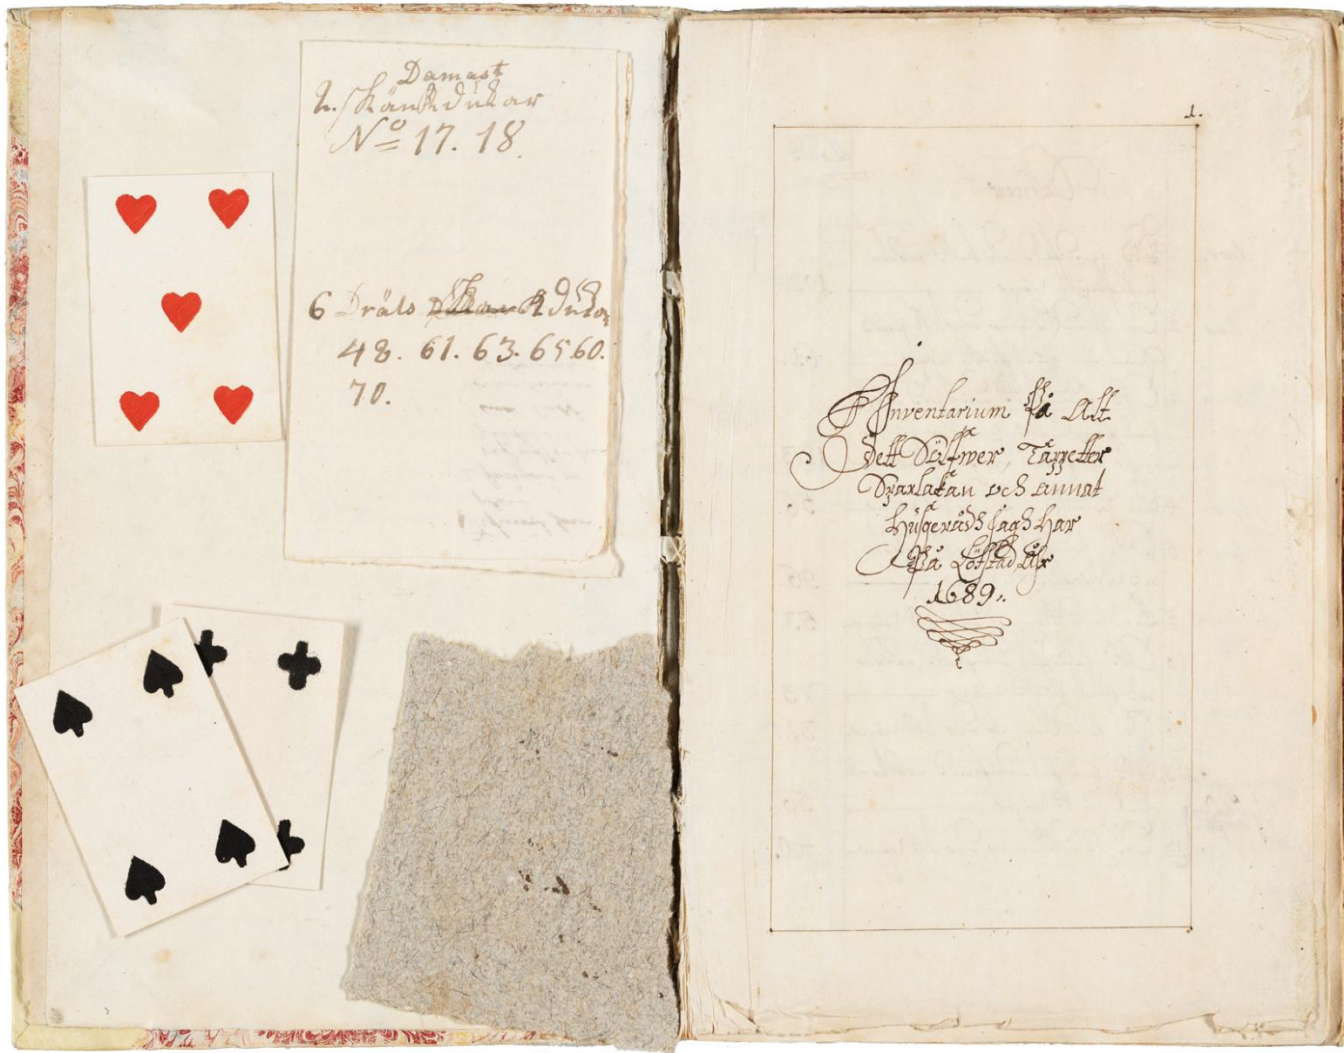 Damast
2. skänkdukar
No 17. 18.
6 Dräls dukar
48. 61. 63. 65. 60.
70.
1.
Inventarium På Alt
dett Sölfwer, Tappetter
Sparlakan och annat
Hüsgerådh Jagh Har
På Löfstad Åhr
1689.